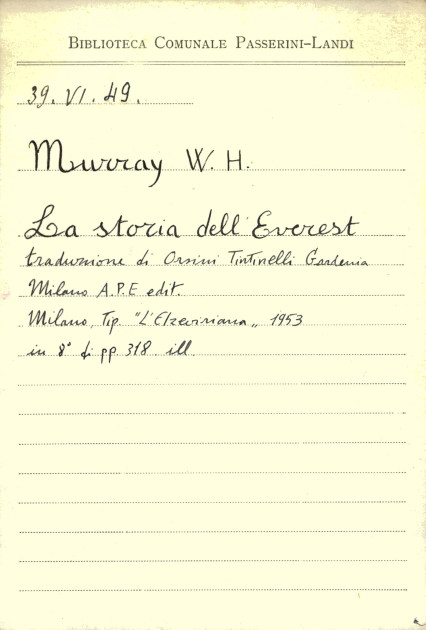 BIBLIOTECA COMUNALE PASSERINI-LANDI
39. VI. 49.
Murray W. H.
La storia dell'Everest
traduzione di Orsini Tintinelli Gardenia
Milano A.P.E edit.
Milano, Tip. "L'Elzeviriana„ 1953
in 8° pp. 318. ill.